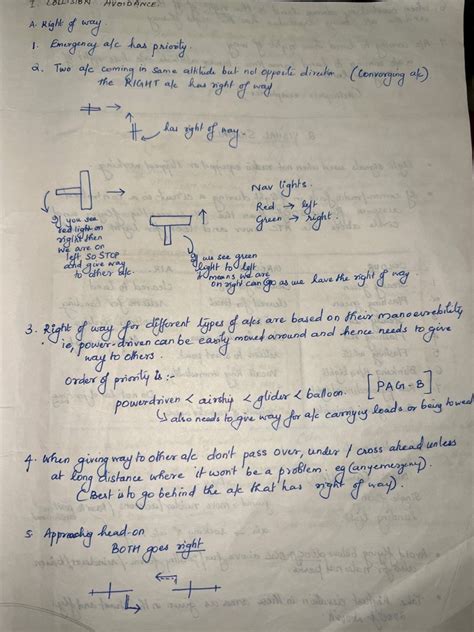 I COLLISION AVOIDANCE
A. Right of way.
1. Emergency a/c has priority.
2. Two a/c coming in same altitude but not opposite direction (Converging a/c)
the RIGHT a/c has right of way
has right of way.
Nav lights.
Red → left
Green → right.
If you see
red light on
right then
we are on
left SO STOP
and give way
to other a/c.
If we see green
light to left
it means we are
on right can go as we have the right of way.
3. Right of way for different types of a/cs are based on their manoevrebility
ie, power-driven can be easily moved around and hence needs to give
way to others.
Order of priority is :-
powerdriven < airship < glider < balloon. [PAG-B]
↳ also needs to give way for a/c carrying loads or being towed
4. When giving way to other a/c don't pass over, under / cross ahead unless
at long distance where it wont be a problem. eg (any emergency).
(Best is to go behind the a/c that has right of way).
5. Approaching head-on
BOTH goes right